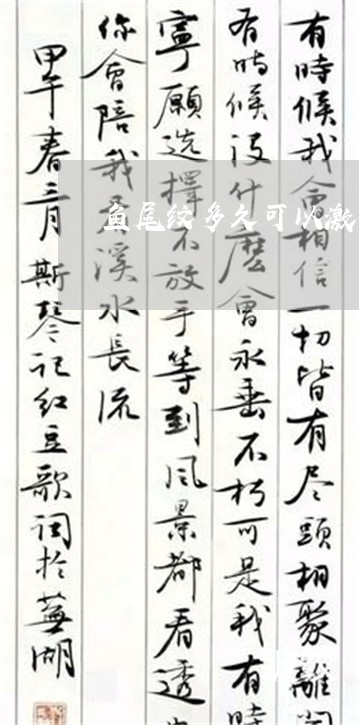 有時候我會相信一切皆有尽頭相聚離開
有時候没什麽會永垂不朽可是我有時
寧願选擇不放手等到风景都看透
你會陪我看溪水長流
甲午春三月斯琴记红豆歌詞扵蕪湖
鱼尾纹多久可以激